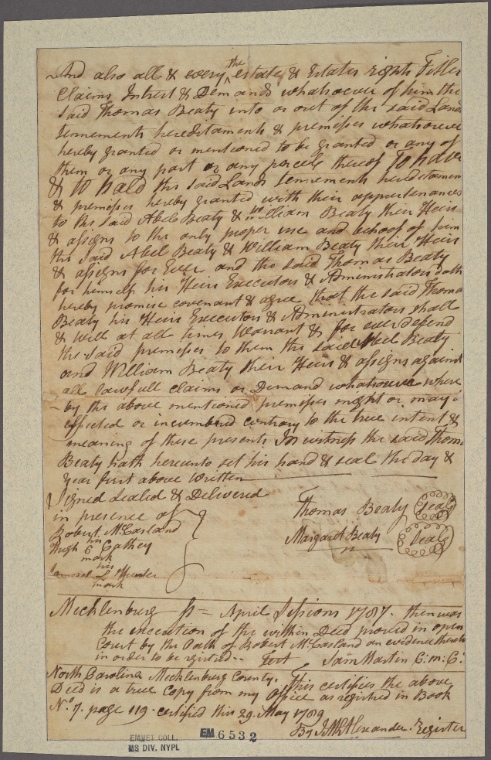 And also all & every the estate & Estates rights Titles
Claims Intrest & Demands whatsoever of him the
said Thomas Beaty into or out of the said Land
tennements hereditaments & premises whatsoever
hereby granted or mentioned to be granted or any of
them or any part or any parcels thereof To have
& to hald the said Lands tennements hereditaments
& premises hereby granted with their appurtenances
to the said Abel Beaty & William Beaty their Heirs
& assigns to the only proper use and behoof of them
the said Abel Beaty & William Beaty their Heirs
& assigns for Ever and the said Thomas Beaty
for himself his Heirs Executors & Administrators doth
hereby promise covenant & agree that the said Thomas
Beaty his Heirs Executors & Administrators shall
& will at all times warrant & for ever defend
the said premises to them the said Abel Beaty
and William Beaty their Heirs & assigns against
all lawfull claims or Demand whatsoever where
by the above mentioned premises might or may be
effected or incumbred contrary to the true intent &
meaning of these presents In witness the said Thomas
Beaty hath hereunto set his hand & seal the day &
year first above written
Signed Sealed & Delivered
in presence of
Thomas Beaty Seal
Robert McCasland
Margaret Beaty Seal
his
Hugh C Cathey
mark
his
Samuel Hunter
mark
Mecklenburg Ss = April Sessions 1787. then was
the execution of the within Deed proved in open
Court by the Oath of Robert McCasland an evidence thereto
in order to be registed. Test Sam Martin C:m:C:
North Carolina Mecklenburg County. This certifies the above
Deed is a true Copy from my Office as registed in Book
No. 7. page 119. certified this 29. May 1789
By J McK Alexander Register
EMMET COLL.
MS DIV. NYPL
EM 6532